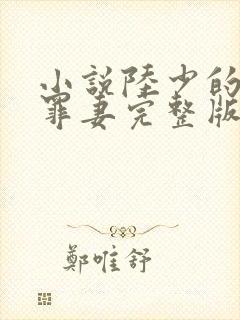 小說陸少的
罪妻完整版
鄭唯舒